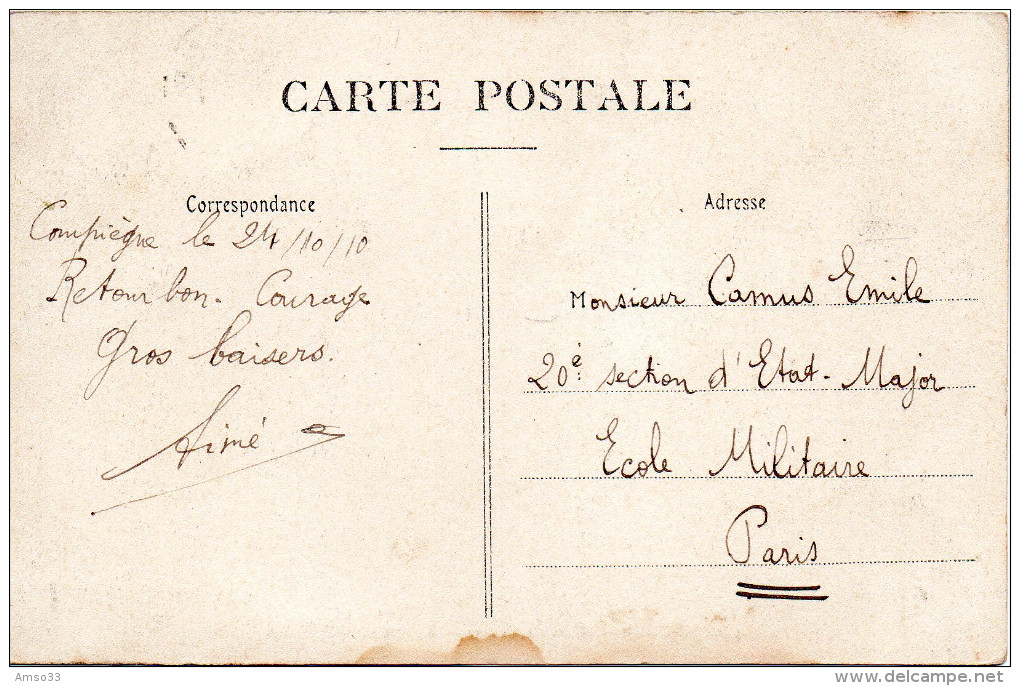 CARTE POSTALE
Correspondance
Compiègne le 24/10/10
Retour bon. Courage
Gros baisers.
Aimé
Adresse
Monsieur Camus Emile
20è section d'Etat-Major
Ecole Militaire
Paris
Amso33
www.delcampe.net